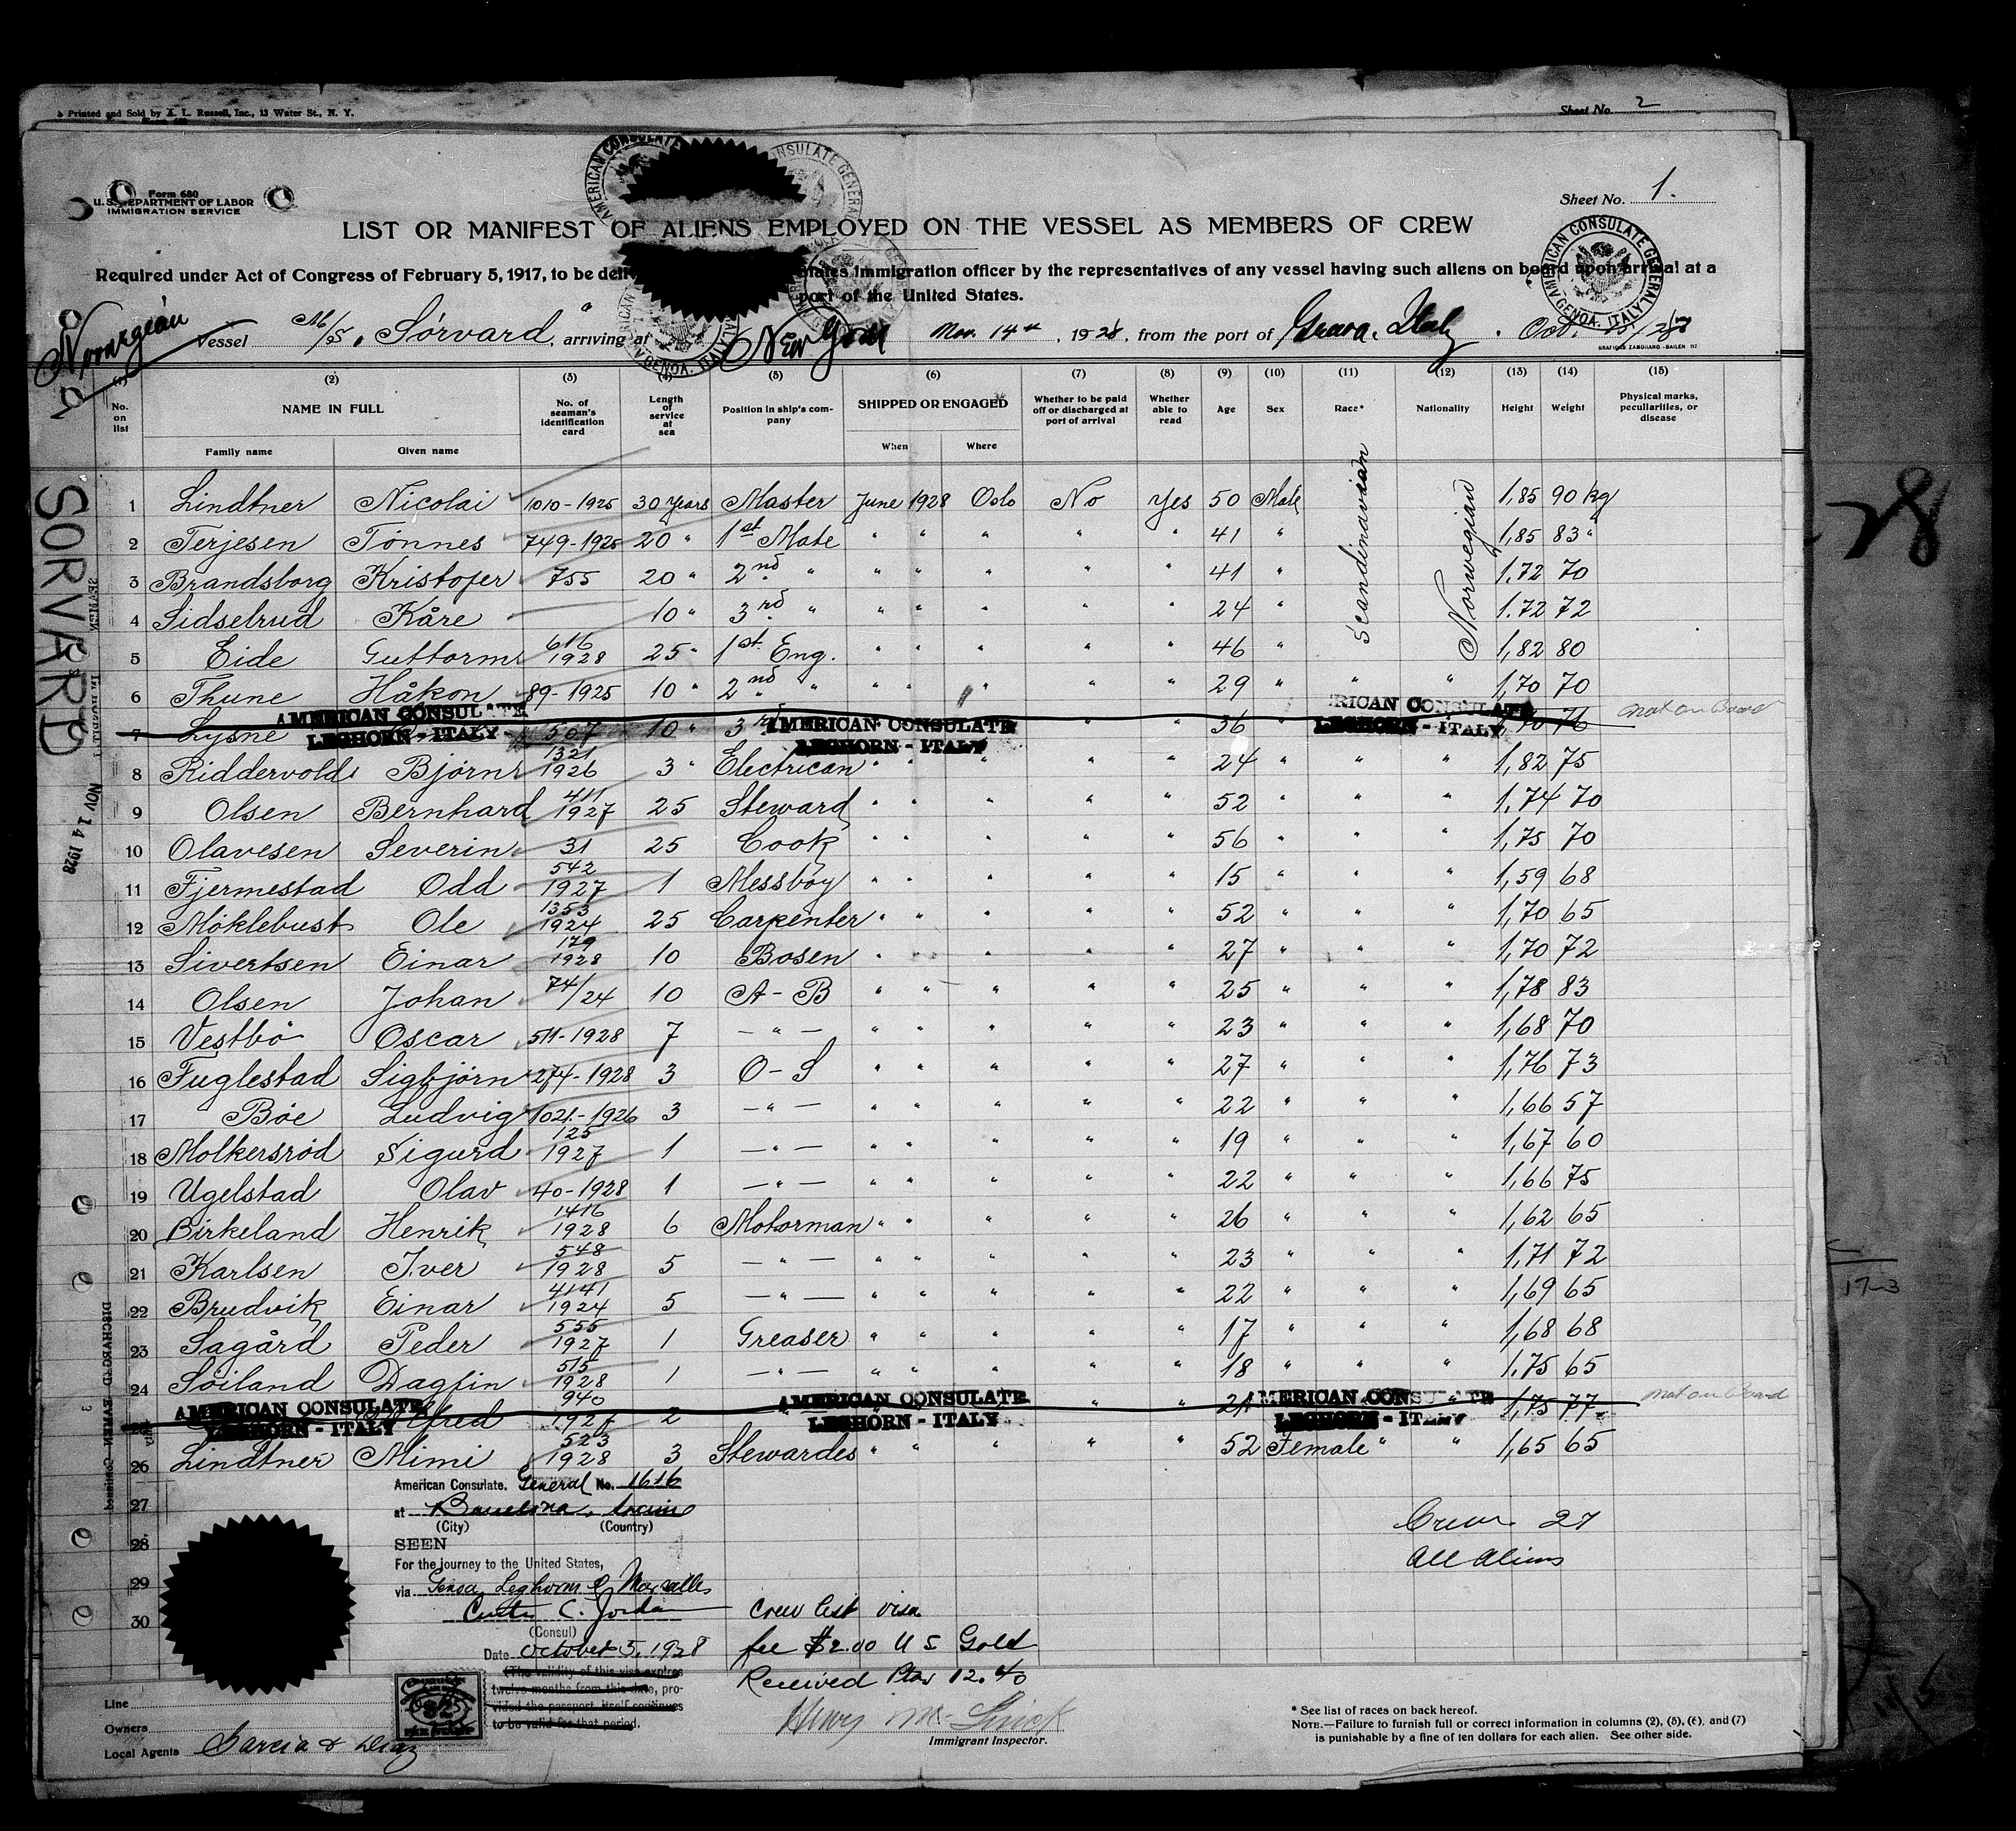 Printed and Sold by A. L. Russell, Inc., 13 Water St., N. Y.
Sheet No. 2
Form 680
U. S. DEPARTMENT OF LABOR
IMMIGRATION SERVICE
Sheet No. 1.
LIST OR MANIFEST OF ALIENS EMPLOYED ON THE VESSEL AS MEMBERS OF CREW
Required under Act of Congress of February 5, 1917, to be deli States immigration officer by the representatives of any vessel having such aliens on board upon arrival at a
port of the United States.
Norwegian
Vessel M/S. Sörvard, arriving at New York Nov. 14th, 1928, from the port of Genova. Italy. Oct.
AMERICAN CONSULATE GENERAL
GENOA, ITALY
(2) (3) (4) (5) (6) (7) (8) (9) (10) (11) (12) (13) (14) (15)
No. on list
NAME IN FULL
Family name
Given name
No. of seaman's identification card
Length of service at sea
Position in ship's company
SHIPPED OR ENGAGED
When
Where
Whether to be paid off or discharged at port of arrival
Whether able to read
Age
Sex
Race*
Nationality
Height
Weight
Physical marks, peculiarities, or disease
Scandinavian
Norwegian
1 Lindtner Nicolai 1010-1925 30 Years Master June 1928 Oslo No Yes 50 Male 1,85 90 kg
2 Terjesen Tönnes 749-1925 20 " 1st Mate " " " " " 41 " 1,85 83 "
3 Brandsborg Kristofer 755 20 " 2nd " " " " " " 41 " 1.72 70
4 Sidselrud Kåre 10 " 3rd " " " " " " 24 " 1.72 72
5 Eide Guttorm 616 1928 25 " 1st Eng. " " " " " 46 " 1,82 80
6 Thune Håkon 89-1925 10 " 2nd " " " " " " 29 " " " 1,70 70
7 Lysne 507 10 " 3rd " " 36 " 1,70 76 not on board
AMERICAN CONSULATE
LEGHORN - ITALY
AMERICAN CONSULATE
LEGHORN - ITALY
AMERICAN CONSULATE
LEGHORN - ITALY
8 Riddervold Bjørn 1321 1926 3 " Electrican " " " " " 24 " " " 1,82 75
9 Olsen Bernhard 411 1927 25 Steward " " " " " 52 " " " 1.74 70
10 Olavesen Severin 31 25 Cook " " " " " 56 " " " 1,75 70
11 Fjermestad Odd 542 1927 1 Messboy " " " " " 15 " " " 1,59 68
12 Möklebust Ole 1353 1924 25 Carpenter " " " " " 52 " " " 1,70 65
13 Sivertsen Einar 179 1928 10 Bosen " " " " " 27 " " " 1,70 72
14 Olsen Johan 74/24 10 A-B " " " " " 25 " " " 1,78 83
15 Vestbö Oscar 511-1928 7 - " - " " " " " 23 " " " 1,68 70
16 Fuglestad Sigbjörn 274-1928 3 O-S " " " " " 27 " " " 1,76 73
17 Böe Ludvig 1021-1926 3 - " - " " " " " 22 " " " 1,66 57
18 Molkersröd Sigurd 125 1927 1 - " - " " " " " 19 " " " 1,67 60
19 Ugelstad Olav 40-1928 1 - " - " " " " " 22 " " " 1,66 75
20 Birkeland Henrik 1416 1928 6 Motorman " " " " " 26 " " " 1,62 65
21 Karlsen Iver 548 1928 5 - " - " " " " " 23 " " " 1,71 72
22 Brudvik Einar 4141 1924 5 - " - " " " " " 22 " " " 1,69 65
23 Sagård Peder 555 1927 1 Greaser " " " " " 17 " " " 1,68 68
24 Söiland Dagfin 515 1928 1 - " - " " " " " 18 " " " 1.75 65
25 Alfred 940 1927 2 " " 21 1,75 77 not on board
AMERICAN CONSULATE
LEGHORN - ITALY
AMERICAN CONSULATE
LEGHORN - ITALY
AMERICAN CONSULATE
LEGHORN - ITALY
26 Lindtner Mimi 523 1928 3 Stewardes " " " " " 52 Female " " 1,65 65
27
28
29
30
American Consulate General No. 1616
at Barcelona, Spain
(City) (Country)
SEEN
For the journey to the United States,
via Genoa, Leghorn & Marseilles
Curtis C. Jordan
(Consul)
Date October 5, 1928
(The validity of this visa expires
twelve months from this date, provided the passport itself continues
to be valid for that period.
Crew list visa
fee $2.00 U S Gold
Received Ptas 12.40
Crew 27
All Aliens
Line
Owners
Local Agents Garcia & Diaz
Immigrant Inspector.
* See list of races on back hereof.
NOTE.—Failure to furnish full or correct information in columns (2), (5), (6), and (7)
is punishable by a fine of ten dollars for each alien. See other side.
SORVARD
NOV 14 1928
28
17-3